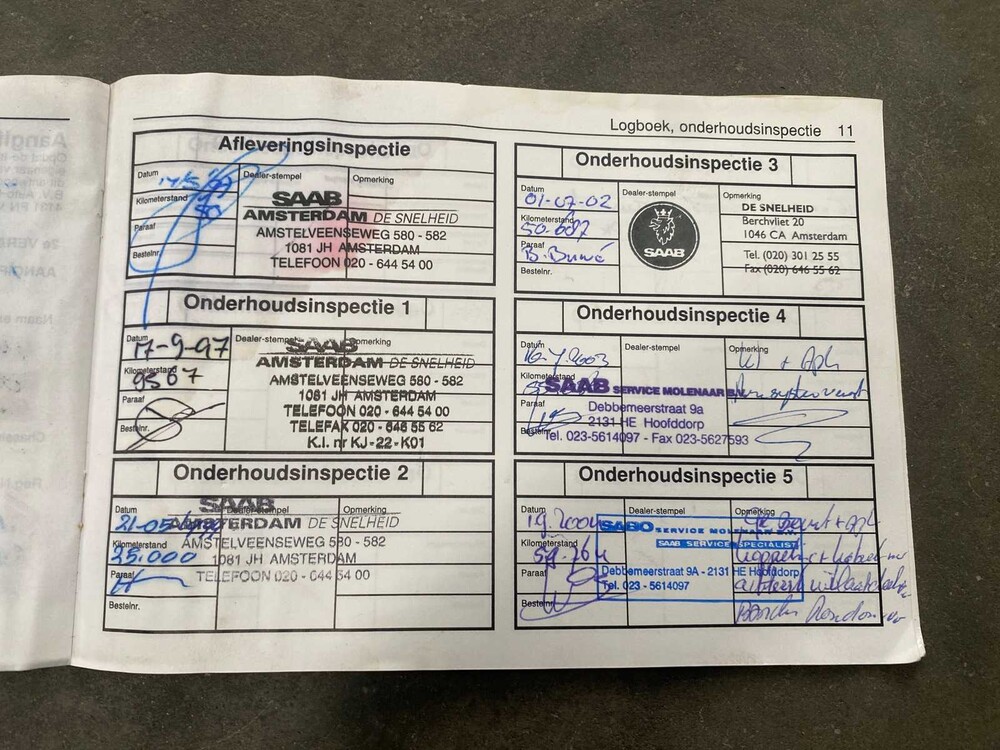 Logboek, onderhoudsinspectie 11
Afleveringsinspectie
Datum
Dealer-stempel
Opmerking
Kilometerstand
Paraaf
Bestelnr.
SAAB
AMSTERDAM DE SNELHEID
AMSTELVEENSEWEG 580 - 582
1081 JH AMSTERDAM
TELEFOON 020 - 644 54 00
Onderhoudsinspectie 1
Datum 17-9-97
Dealer-stempel
Opmerking
Kilometerstand 9567
Paraaf
Bestelnr.
SAAB
AMSTERDAM DE SNELHEID
AMSTELVEENSEWEG 580 - 582
1081 JH AMSTERDAM
TELEFOON 020 - 644 54 00
TELEFAX 020 - 646 55 62
K.I. nr KJ - 22 - K01
Onderhoudsinspectie 2
Datum
Dealer-stempel
Opmerking
Kilometerstand
35.000
Paraaf
Bestelnr.
SAAB
AMSTERDAM DE SNELHEID
AMSTELVEENSEWEG 580 - 582
1081 JH AMSTERDAM
TELEFOON 020 - 644 54 00
Onderhoudsinspectie 3
Datum
01-07-02
Dealer-stempel
Opmerking
Kilometerstand
50.687
Paraaf
Bestelnr.
SAAB
DE SNELHEID
Berchvliet 20
1046 CA Amsterdam
Tel. (020) 301 25 55
Fax (020) 646 55 62
Onderhoudsinspectie 4
Datum
Dealer-stempel
Opmerking
Kilometerstand
Paraaf
Bestelnr.
SAAB SERVICE MOLENAAR B.V.
Debbemeerstraat 9a
2131 HE Hoofddorp
Tel. 023-5614097 - Fax 023-5627593
Onderhoudsinspectie 5
Datum
Dealer-stempel
Opmerking
Kilometerstand
Paraaf
Bestelnr.
SABO SERVICE MOLENAAR B.V.
SAAB SERVICE SPECIALIST
Debbemeerstraat 9A - 2131 HE Hoofddorp
Tel. 023 - 5614097